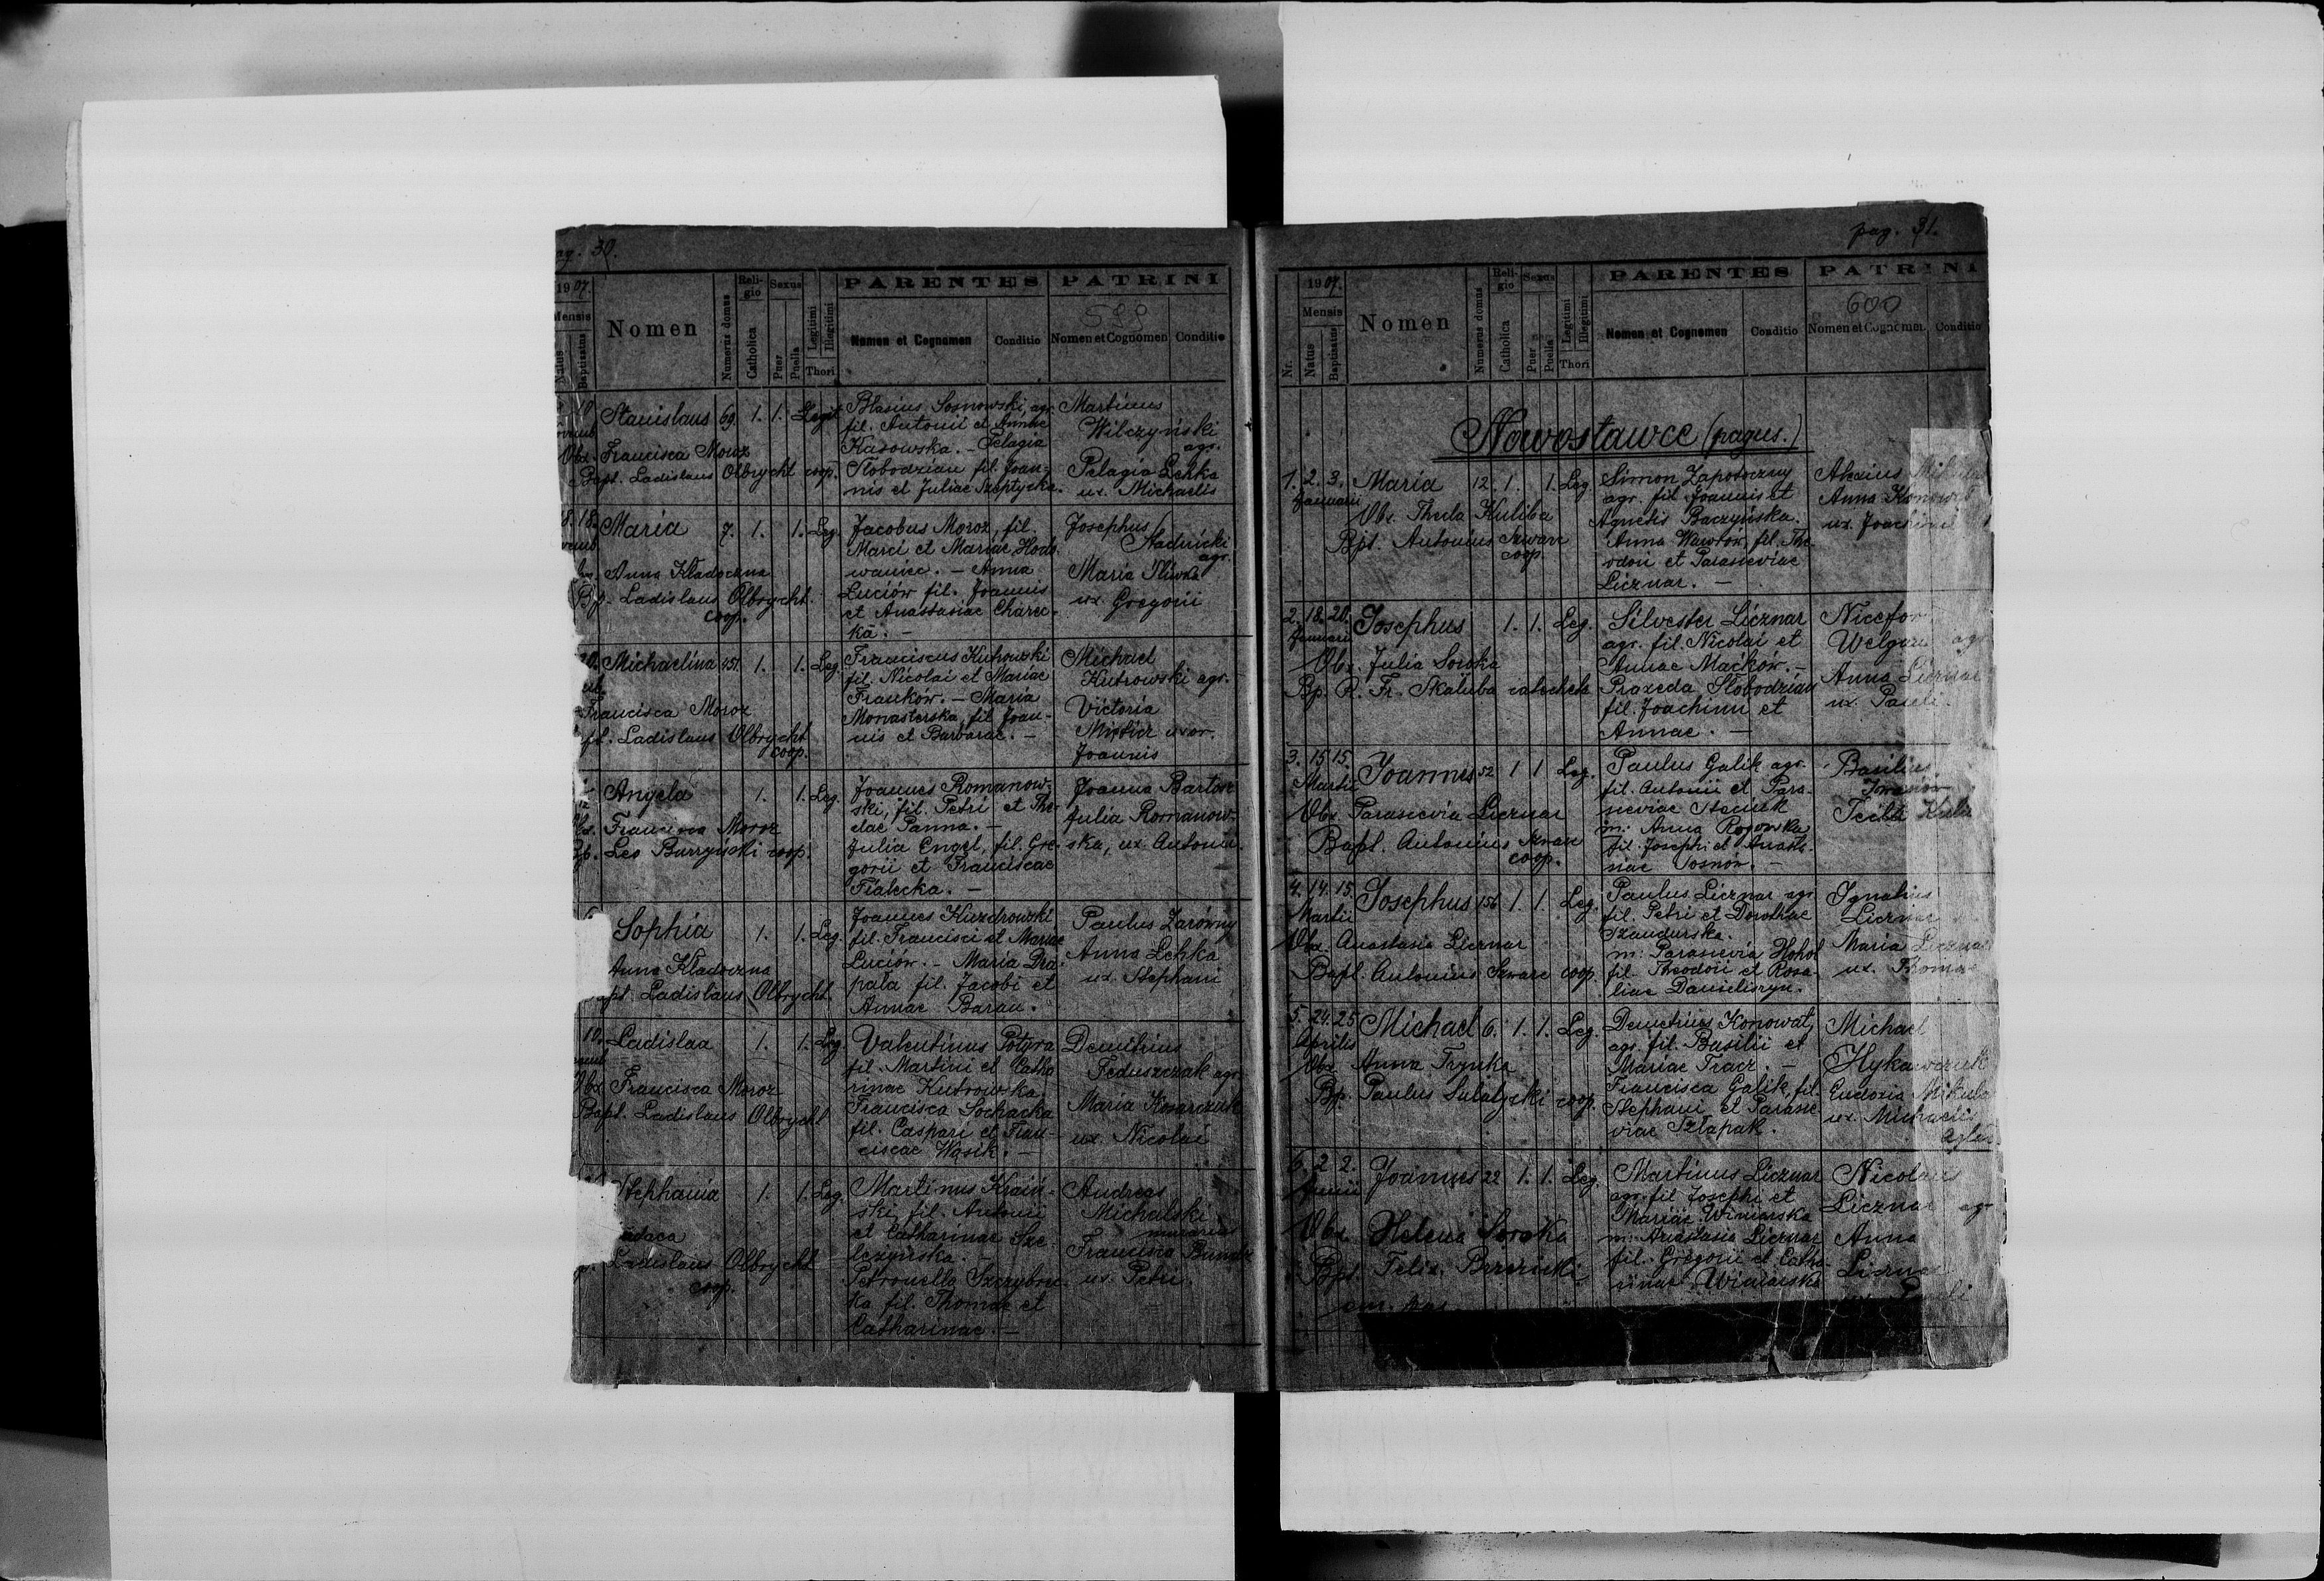 30.
1907.
Mensis
Natus
Baptisatus
Nomen
Numerus domus
Religio
Catholica
Sexus
Puer
Puella
Legitimi
Illegitimi
Thori
PARENTES
Nomen et Cognomen
Conditio
PATRINI
Nomen et Cognomen
Conditio
Stanislaus 69. 1. 1. Legit.
Obx. Francisca Moroz
Bapt. Ladislaus Olbrycht coop.
Blasius Sosnowski, agr.
fil. Antonii et Annae
Kasowska. - Pelagia
Slobodzian fil. Joan-
nis et Juliae Szeptycka.
Martinus
Wilczyński
agr.
Pelagia Lehka
ux. Michaelis
18. 18.
Maria 7. 1. 1. Leg.
Anna Kladoczna
Bp. Ladislaus Olbrycht
coop.
Jacobus Moroz, fil.
Marci et Mariae Hodo-
waniec. - Anna
Luciów fil. Joannis
et Anastasiae Charec-
ka. -
Josephus
agr.
Maria Sliwka
ux. Gregorii
Michaelina 451. 1. 1. Leg.
Francisca Moroz
Ladislaus Olbrycht
coop.
Franciscus Kutrowski
fil. Nicolai et Mariae
Franków. - Maria
Monasterska, fil. Joan-
nis et Barbarae. -
Michael
Kutrowski agr.
Victoria
uxor.
Joannis
Angela 1. 1. Leg.
Francisca Moroz
Leo coop.
Joannes Romanow-
ski, fil. Petri et The-
clae Panna. -
Julia Engel, fil. Gre-
gorii et Franciscae
Fialecka. -
Joanna Bartosz
Julia Romanow-
ska, ux. Antonii.
Sophia 1. 1. Leg.
Anna Kladoczna
Ladislaus Olbrycht
Joannes Kuzdrowski
fil. Francisci et Mariae
Luciów. - Maria Dra-
pala fil. Jacobi et
Annae Baran.
Paulus Zarówny
Anna Lehka
ux. Stephani
10.
Ladislaa 1. 1. Leg.
Obx. Francisca Moroz
Bapt. Ladislaus Olbrycht
Valentinus Potyra
fil. Martini et Catha
rinae Kutrowska
Francisca Sochacka
fil. Caspari et Fran-
ciscae Wąsik. -
Demitrius
Feduszczak agr.
Maria Kosarczuk
ux. Nicolai
Stephania 1. 1. Leg.
Ladislaus Olbrycht
coop.
Martinus Kraiń-
ski, fil. Antonii
et Catharinae Sze-
leżyńska. -
Petronella
ka fil. Thomae et
Catharinae. -
Andreas
Michalski
Francisca
ux. Petri.
pag. 31.
1907.
Mensis
Nr.
Natus
Baptisatus
Nomen
Numerus domus
Religio
Catholica
Sexus
Puer
Puella
Legitimi
Illegitimi
Thori
PARENTES
Nomen et Cognomen
Conditio
PATRINI
600
Nomen et Cognomen
Conditio
Nowostawce (pagus.)
1. 2. 3. Maria 12. 1. 1. Leg.
Januarii
Obx. Thecla Kuliba
Bpt. Antonius Szwarc
coop.
Simon Zapotoczny
agr. fil. Joannis et
Agnetis Baczyńska.
Anna Wawrów, fil. The-
odori et Parasceviae
Licznar. -
Alexius
Anna
ux. Joachimi
2. 18. 20. Josephus 1. 1. Leg.
Januarii
Obx. Julia Soroka
Bp. P. Fr. Skałuba catecheta
Silvester Licznar
agr. fil. Nicolai et
Annae Maćków. -
Praxeda Slobodzian
fil. Joachimi et
Annae. -
Nicefor
agr
Anna Licznar
ux. Pauli.
3. 15 15. Joannes 52 1 1 Leg.
Martii
Obx. Parascevia Licznar
Bapt. Antonius Szwarc
coop.
Paulus Galik agr.
fil. Antonii et Para-
sceviae
m. Anna Rogowska
fil. Josephi et Anasta-
siae Sosnów. -
Basilius
Tecla
4. 14. 15. Josephus 156 1. 1. Leg.
Martii
Obx. Anastasia Licznar
Bapt. Antonius Szwarc coop.
Paulus Licznar agr
fil. Petri et Dorotheae
Szandurska.
m. Parascevia Hohol
fil. Theodori et Rosa-
liae
Ignatius
Licznar
Maria Licznar
ux.
5. 24. 25 Michael 6. 1. 1. Leg.
Aprilis
Obx. Anna
Bp. Paulus coop.
Demetrius Konowat,
agr. fil. Basilii et
Mariae Tracz. -
Francisca Galik, fil.
Stephani et Parasce-
viae Szlapak.
Michael
Hykawczuk
Eudoxia Mikula
ux. Michaelis
6. 2 2. Joannes 22 1. 1. Leg.
Junii
Obx Helena Soroka
Bpt. Felix
Martinus Licznar
agr. fil Josephi et
Mariae Winiarska
m. Anastasia Licznar
fil. Gregorii et Catha-
rinae Winiarska
Nicolaus
Licznar agr
Anna
Licznar
ux. Pauli